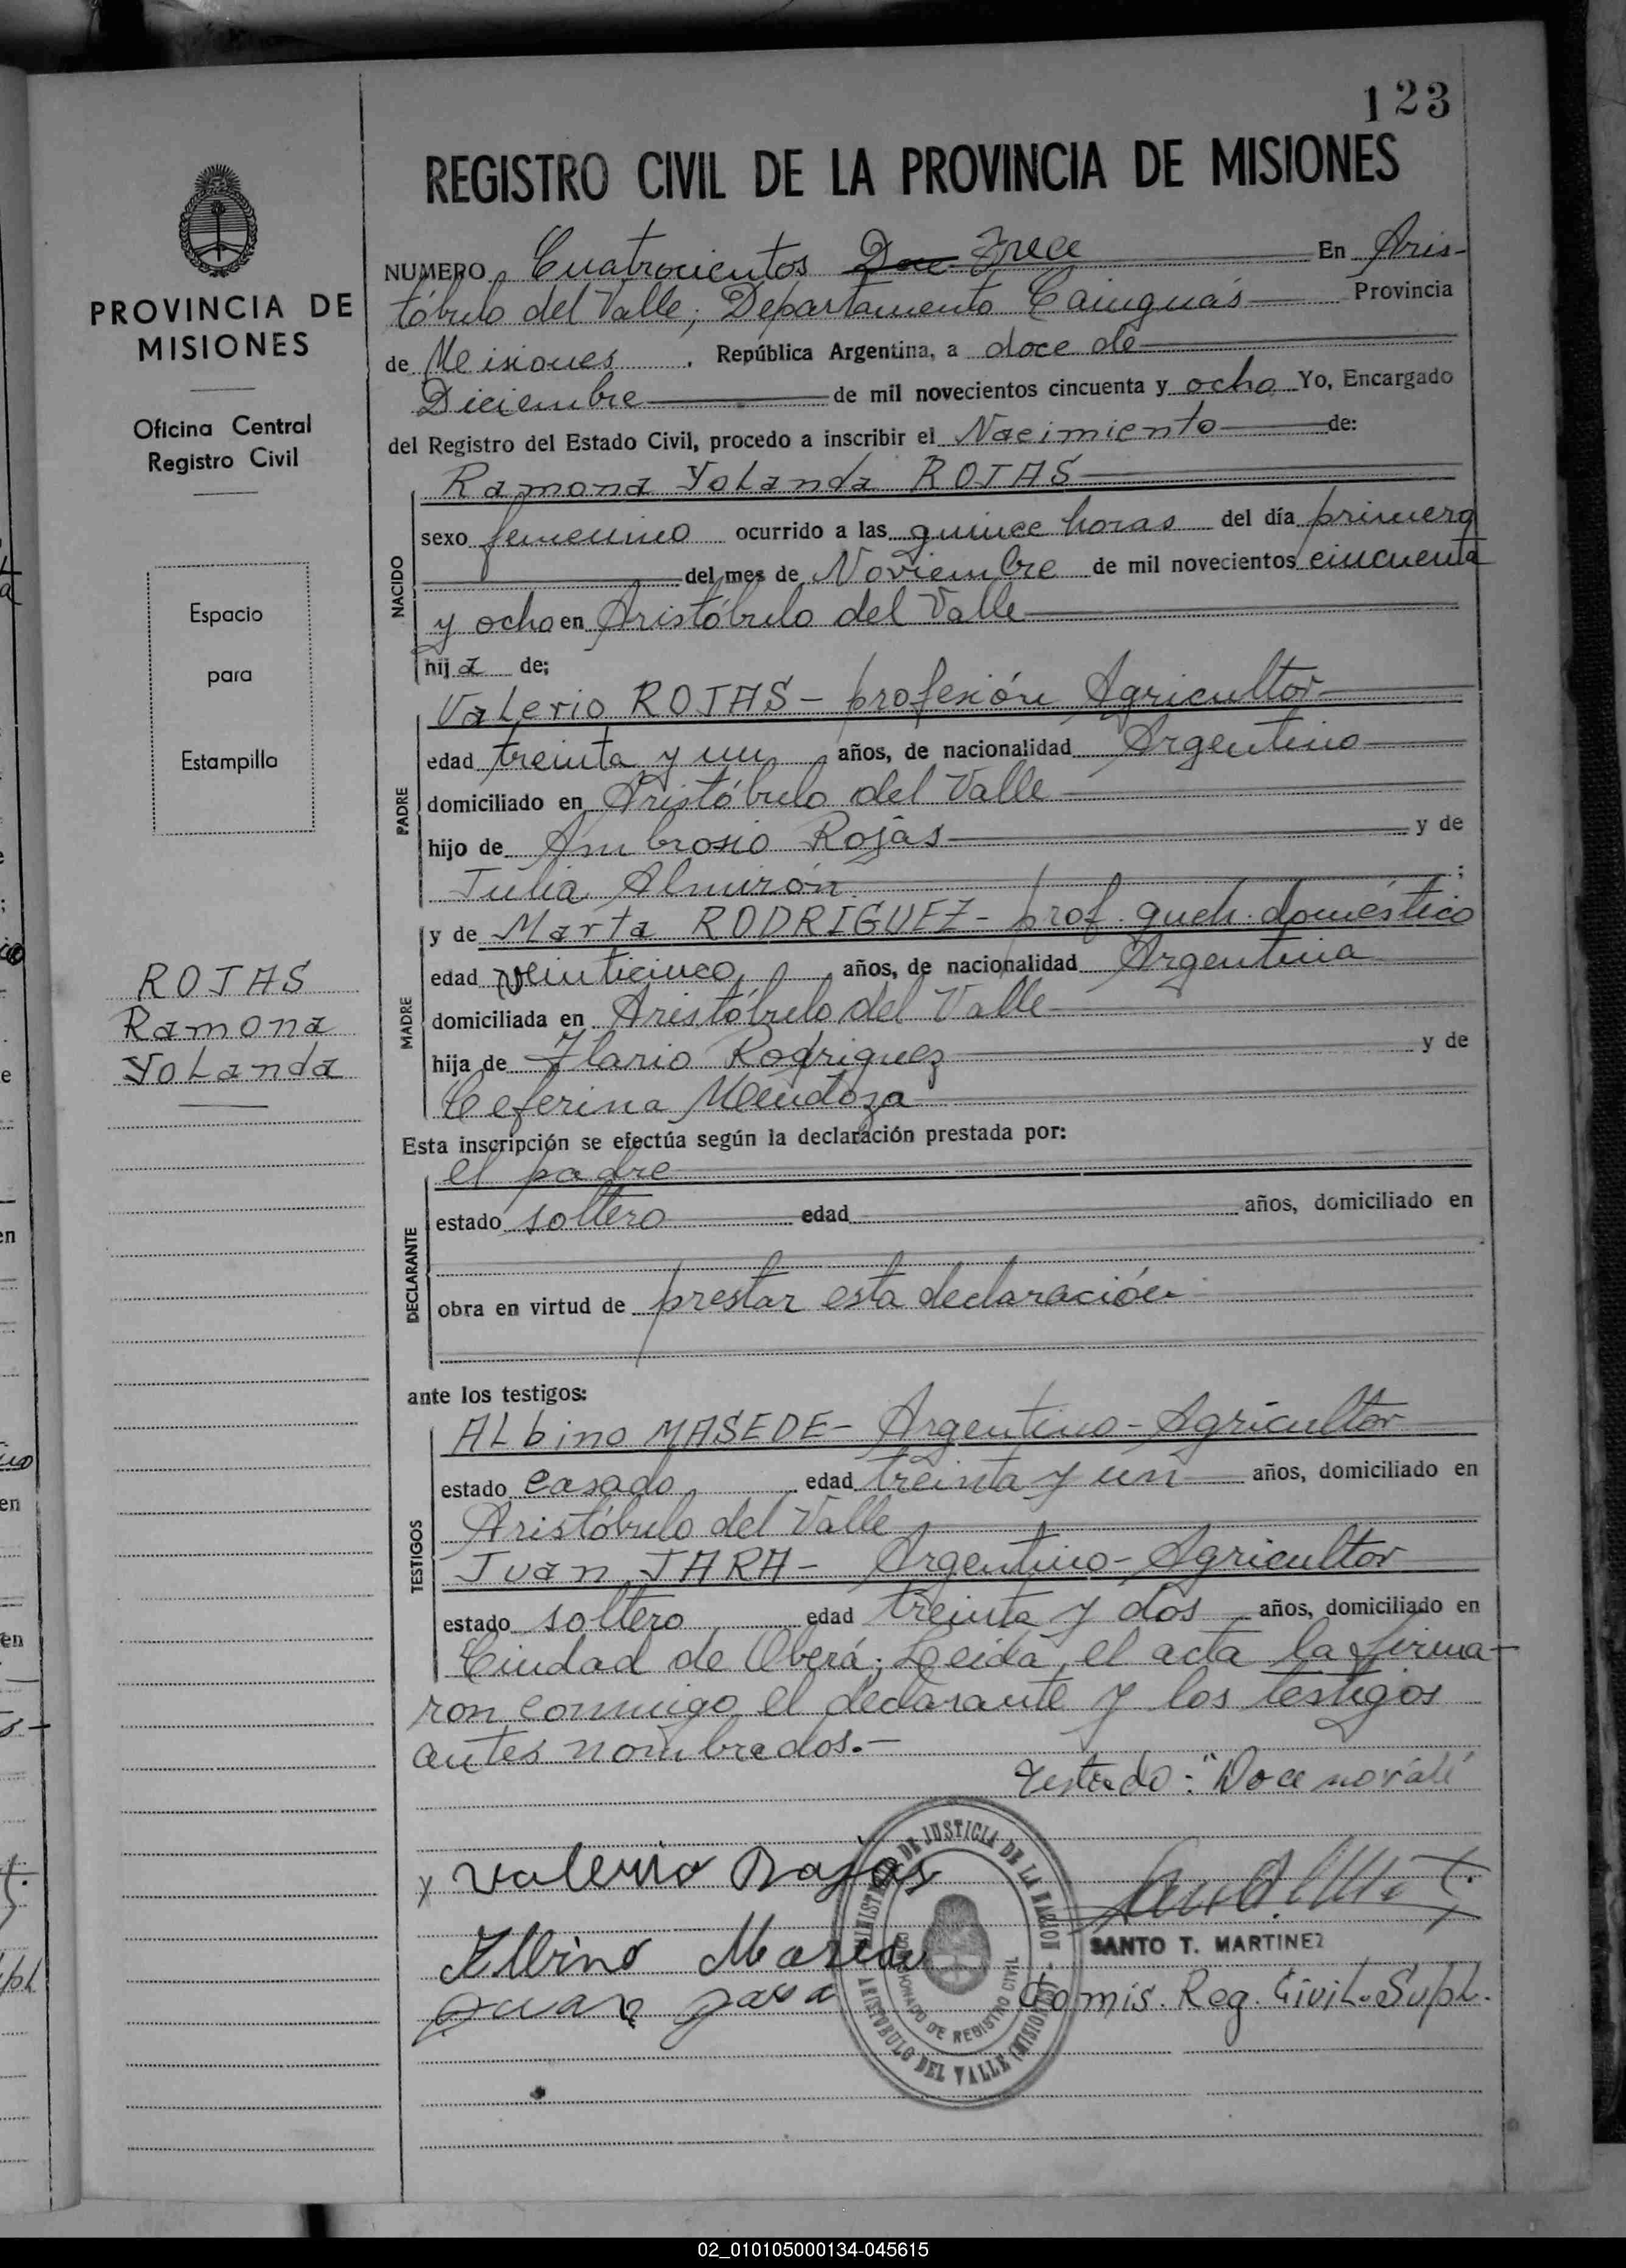 123
REGISTRO CIVIL DE LA PROVINCIA DE MISIONES
PROVINCIA DE
MISIONES
Oficina Central
Registro Civil
Espacio
para
Estampilla
ROJAS
Ramona
Yolanda
NUMERO Cuatrocientos Doce Trece En Aris-
tóbulo del Valle; Departamento Cainguás Provincia
de Misiones. República Argentina, a doce de
Diciembre de mil novecientos cincuenta y ocho Yo, Encargado
del Registro del Estado Civil, procedo a inscribir el Nacimiento de:
NACIDO
Ramona Yolanda ROJAS
sexo femenino ocurrido a las quince horas del día primero
del mes de Noviembre de mil novecientos cincuenta
y ocho en Aristóbulo del Valle
hija de:
PADRE
Valerio ROJAS - profesión Agricultor
edad treinta y un años, de nacionalidad Argentino
domiciliado en Aristóbulo del Valle
hijo de Ambrosio Rojas y de
Julia Almirón ;
MADRE
y de Marta RODRIGUEZ - prof. queh. doméstico
edad veinticinco años, de nacionalidad Argentina
domiciliada en Aristóbulo del Valle
hija de Ilario Rodriguez y de
Ceferina Mendoza
Esta inscripción se efectúa según la declaración prestada por:
DECLARANTE
el padre
estado soltero edad años, domiciliado en
obra en virtud de prestar esta declaración
ante los testigos:
TESTIGOS
Albino MASEDE - Argentino - Agricultor
estado casado edad treinta y un años, domiciliado en
Aristóbulo del Valle
Juan JARA - Argentino - Agricultor
estado soltero edad treinta y dos años, domiciliado en
Ciudad de Oberá; Leida el acta la firma-
ron conmigo el declarante y los testigos
antes nombrados.-
Testado: "Doce no vale"
x Valerio Rojas
Albino Masede
Juan Jara
MINISTERIO DE JUSTICIA DE LA NACION - ARISTOBULO DEL VALLE (MISIONES)
COMISIONADO DE REGISTRO CIVIL
SANTO T. MARTINEZ
Comis. Reg. Civil. Supl.
02_010105000134-045615